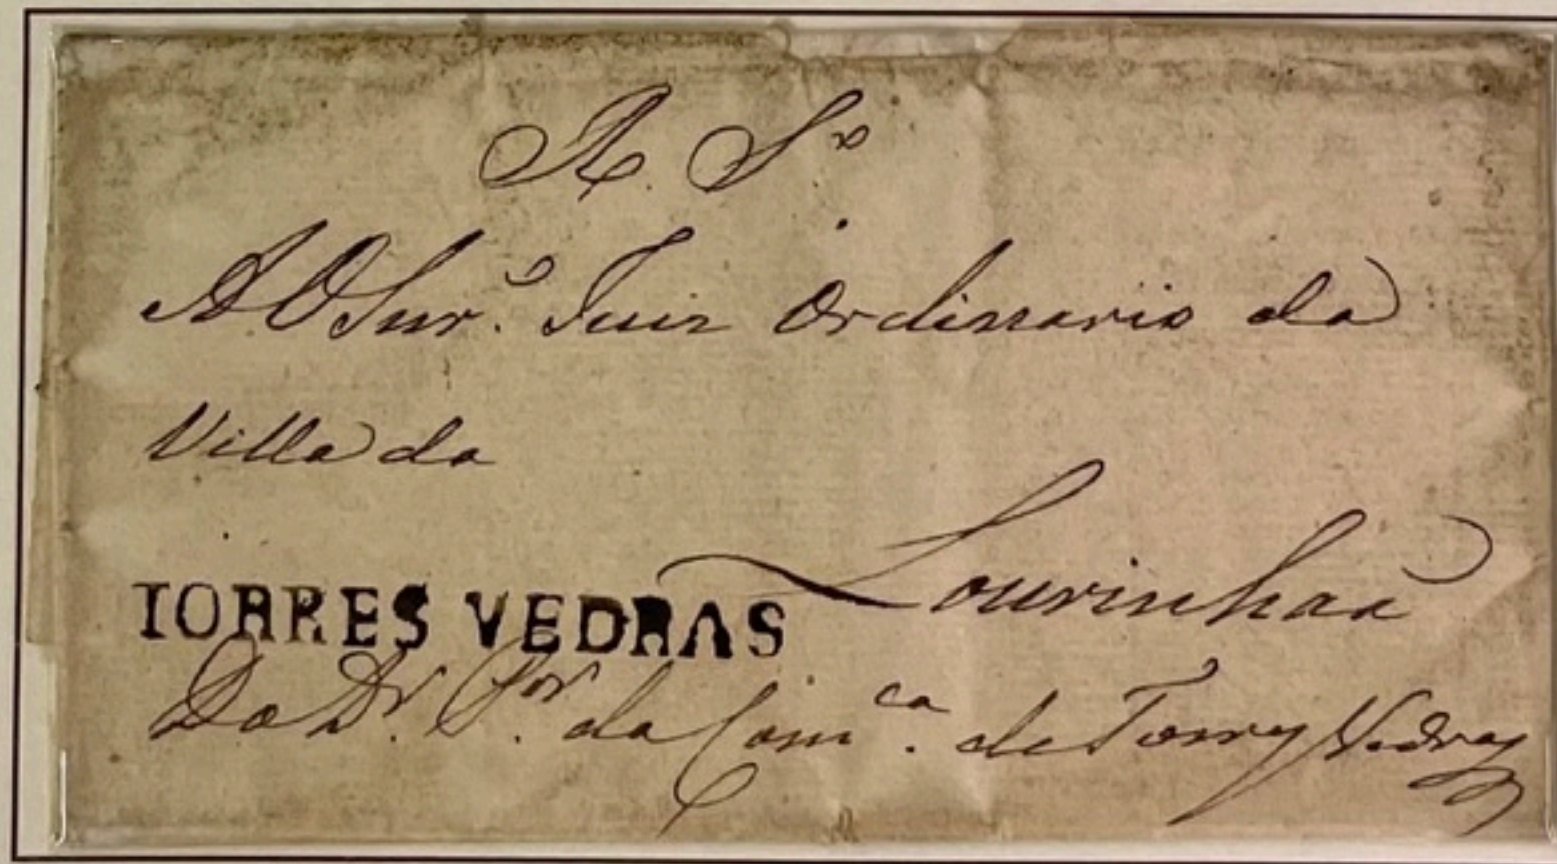 R. S.º
Ao Snr.º Juiz Ordinario da
Villa da
Lourinhaã
TORRES VEDRAS
Do Dr. Cor. da Com.ca de Torres Vedras